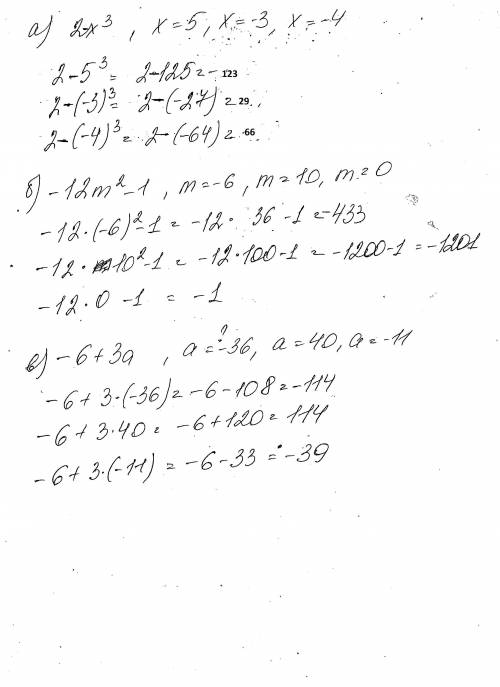 а) 2-x³ , x=5, x=-3, x=-4
2-5³= 2-125=-123
2-(-3)³= 2-(-27)=29.
2-(-4)³= 2-(-64)=66
б) -12m²-1 , m=-6, m=10, m=0
-12·(-6)²-1 = -12· 36-1=-433
-12·10²-1 = -12·100-1 = -1200-1 = -1201
-12·0 -1 = -1
в) -6+3a , a=-36, a=40, a=-11
?
-6+3·(-36)=-6-108=-114
-6+3·40= -6+120=114
-6+3·(-11) = -6-33 =-39